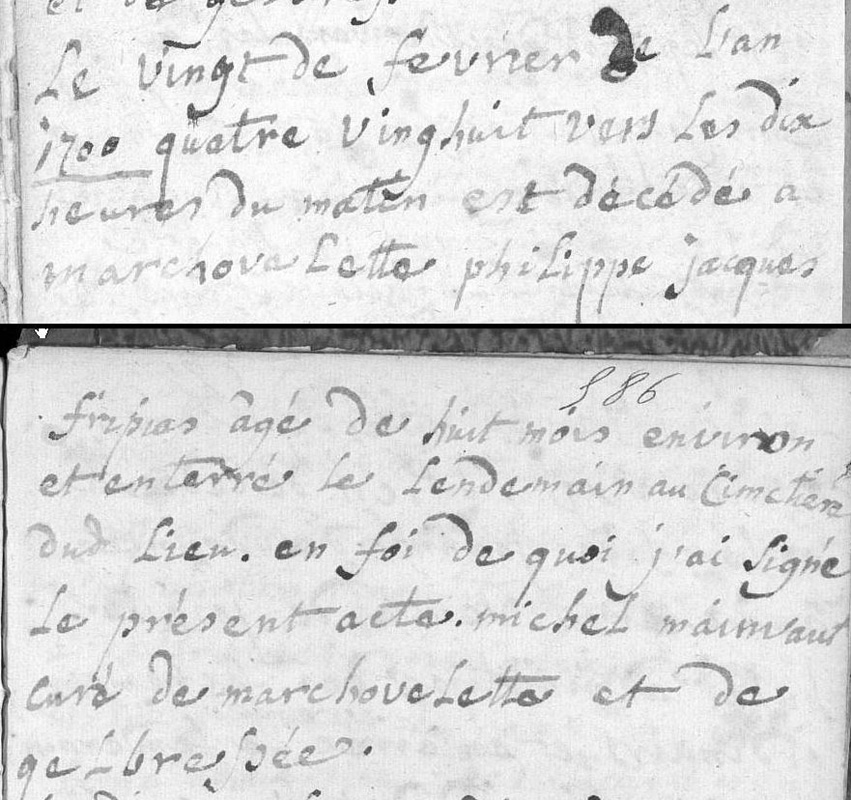 Le vingt de février de L'an
1700 quatre vinghuit vers Les dix
heures du matin est décédé a
marchoveLette phiLippe jacques
586
fripias âgé de huit mois environ
et enterré le Lendemain au Cimetiere
dud Lieu. en foi de quoi j'ai signé
Le présent acte. michel mainvaut
curé de marchoveLette et de
geLbressée.